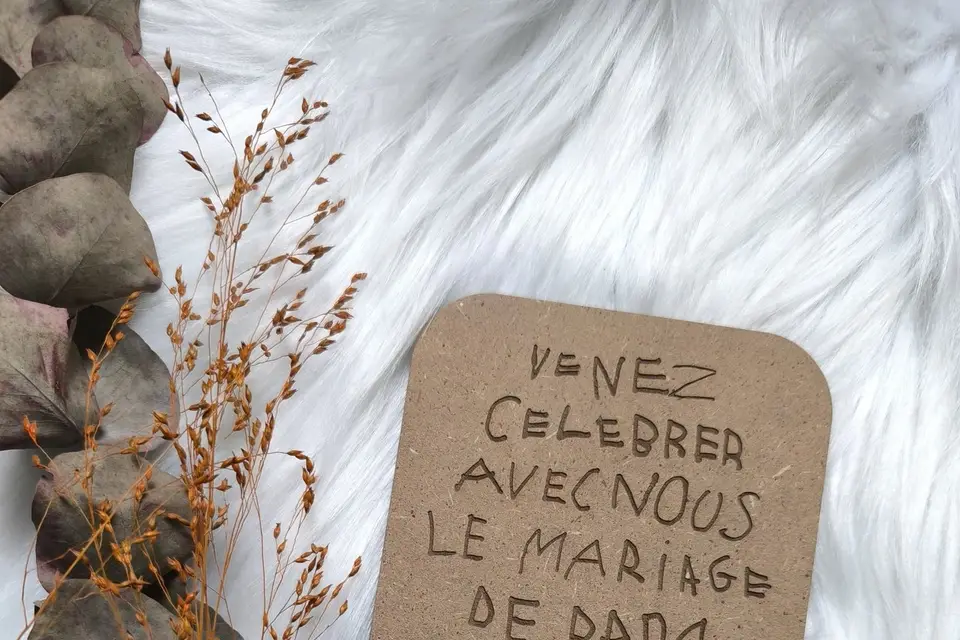 VENEZ
CELEBRER
AVEC NOUS
LE MARIAGE
DE PAPA